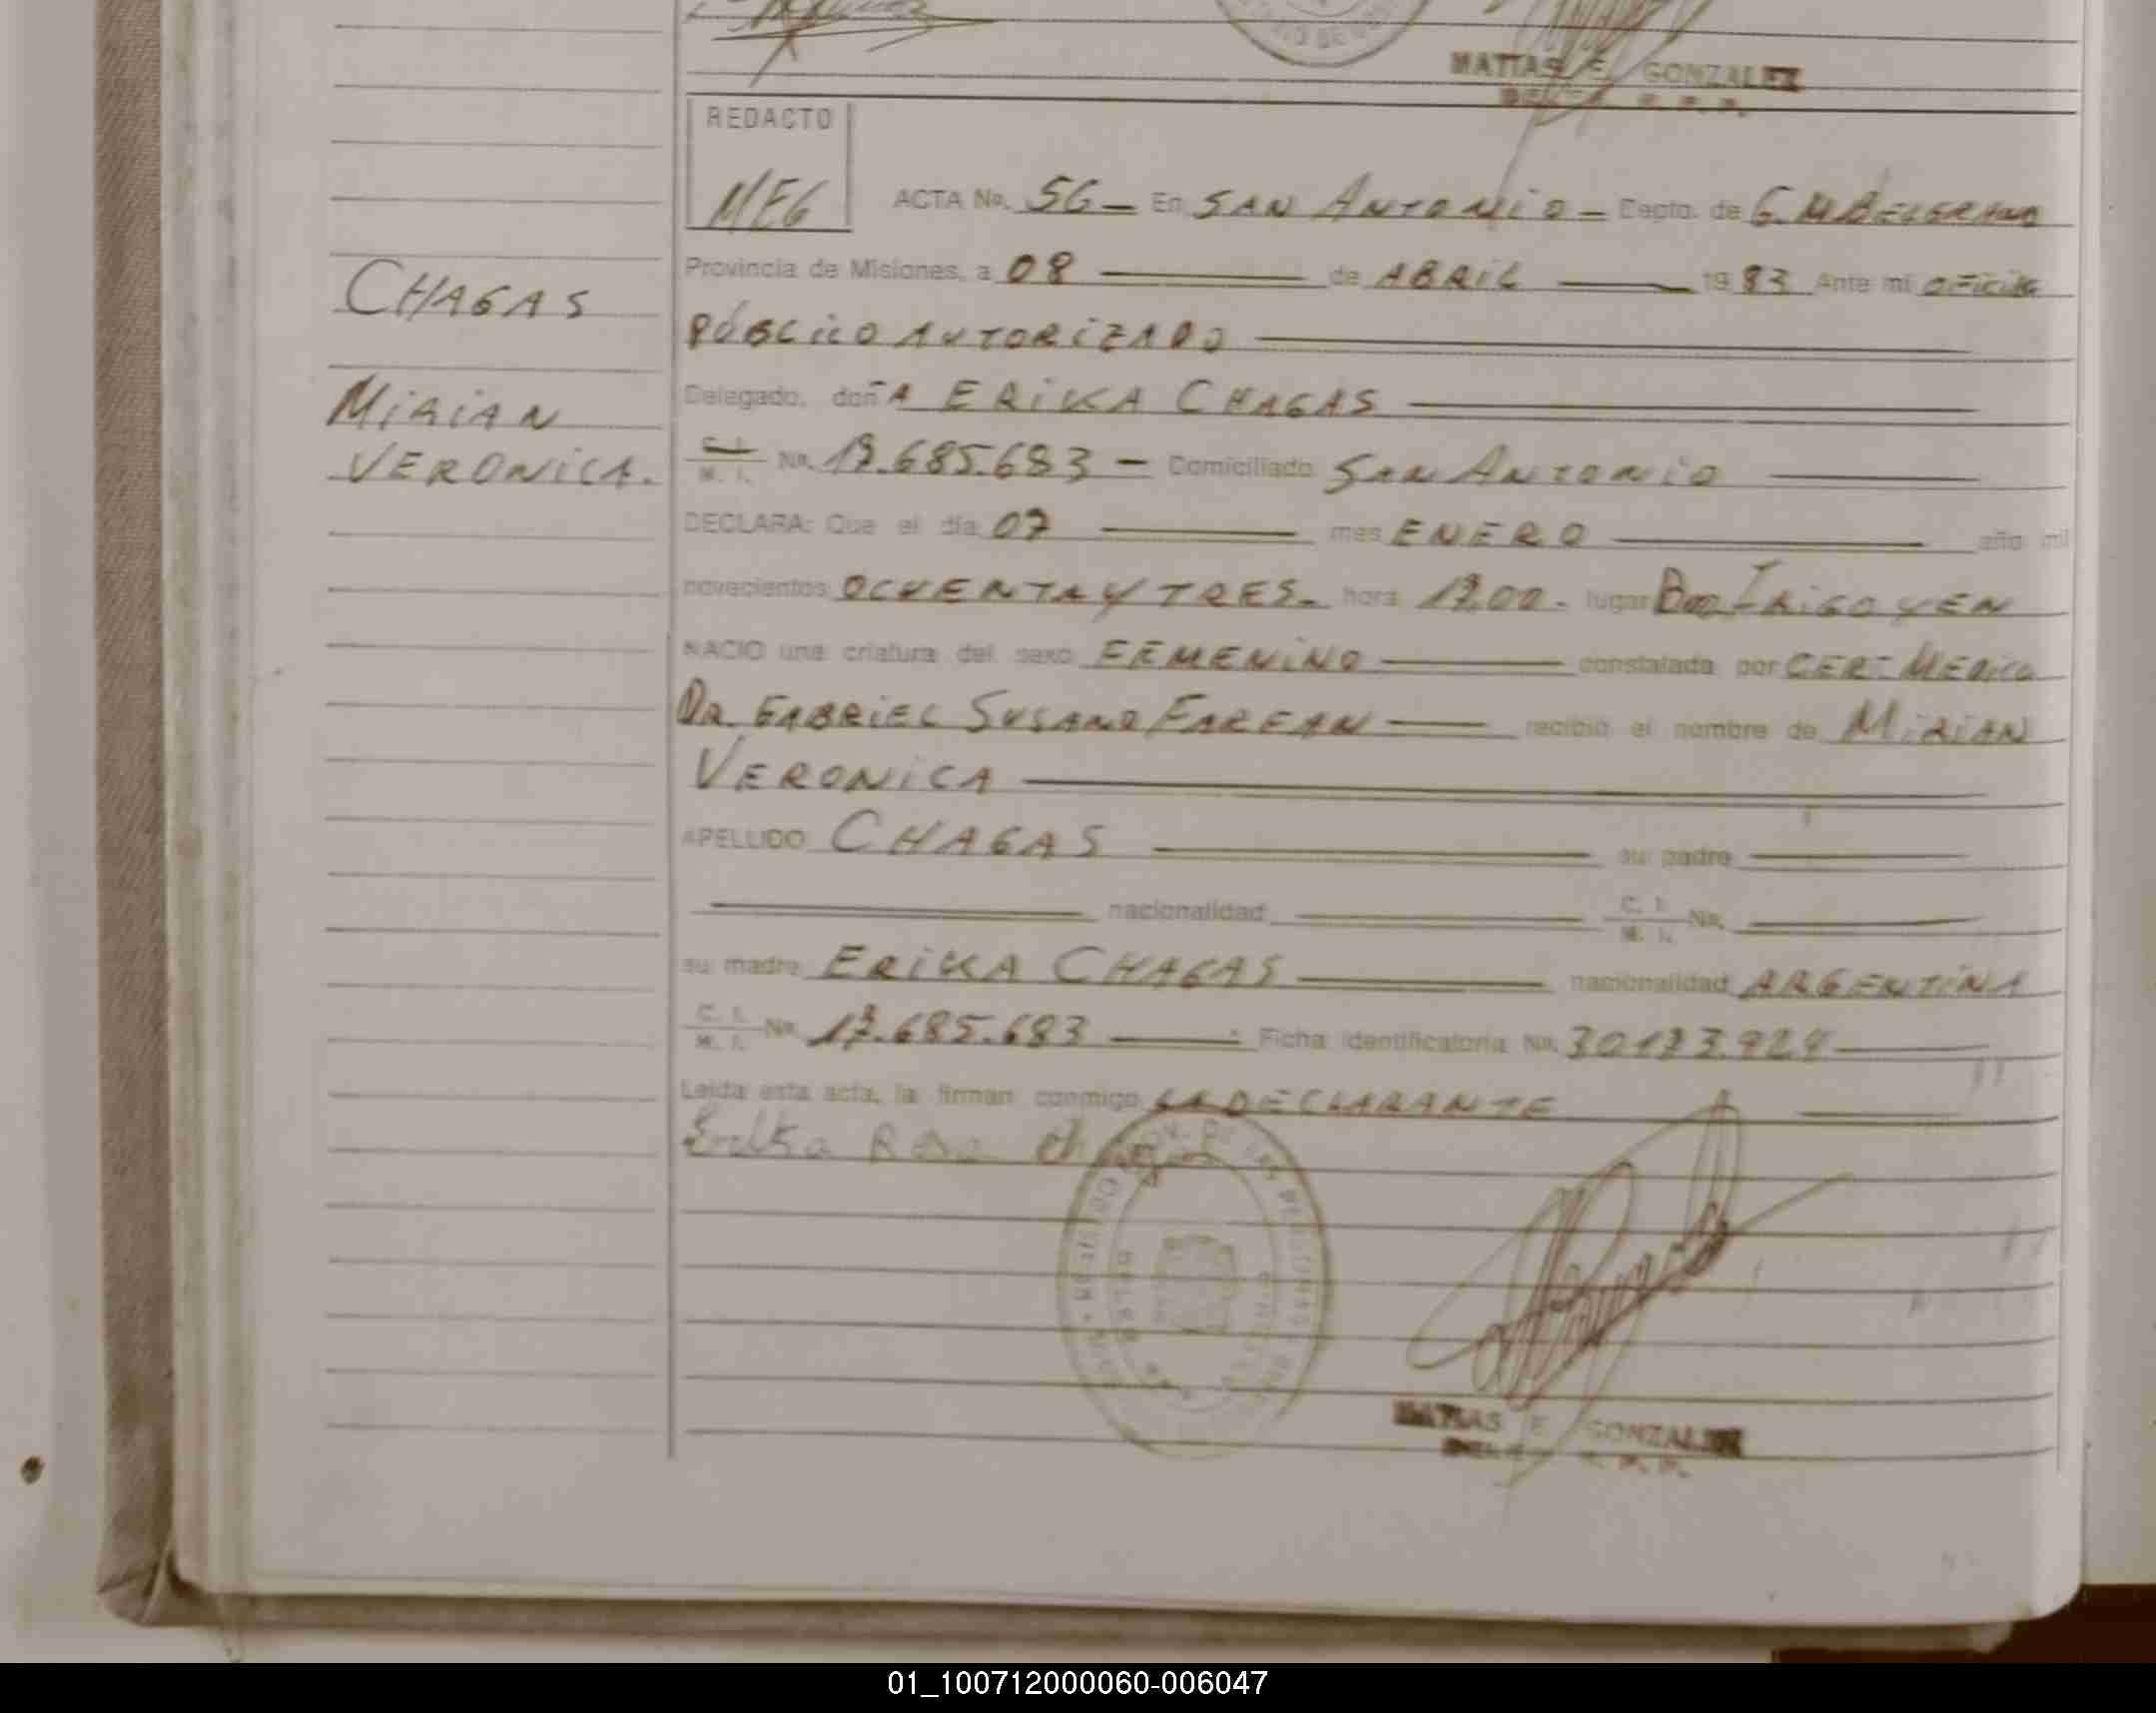 MATIAS E. GONZALEZ
REDACTO
MEG
ACTA No. 56 — En SAN ANTONIO — Depto. de G. M BELGRANO
Provincia de Misiones, a 08 de ABRIL 1983 Ante mi OFICIAL
CHAGAS
PÚBLICO AUTORIZADO
Delegado, doñA ERIKA CHAGAS
MIRIAN
C. I. M. I. No. 17.685.683 — Domiciliado SAN ANTONIO
VERONICA.
DECLARA: Que el día 07 mes ENERO año mil
novecientos OCHENTA Y TRES. hora 17,00. lugar Bdo IRIGOYEN
NACIO una criatura del sexo FEMENINO constatada por CER- MEDICO
DR. GABRIEL SUSANO recibió el nombre de MIRIAN
VERONICA
APELLIDO CHAGAS su padre
nacionalidad C. I. M. I. No.
su madre ERIKA CHAGAS nacionalidad ARGENTINA
C. I. M. I. No. 17.685.683 Ficha Identificatoria No. 30123.924
Leida esta acta, la firman conmigo LA DECLARANTE
Erika Rosa
MATIAS E. GONZALEZ
01_100712000060-006047